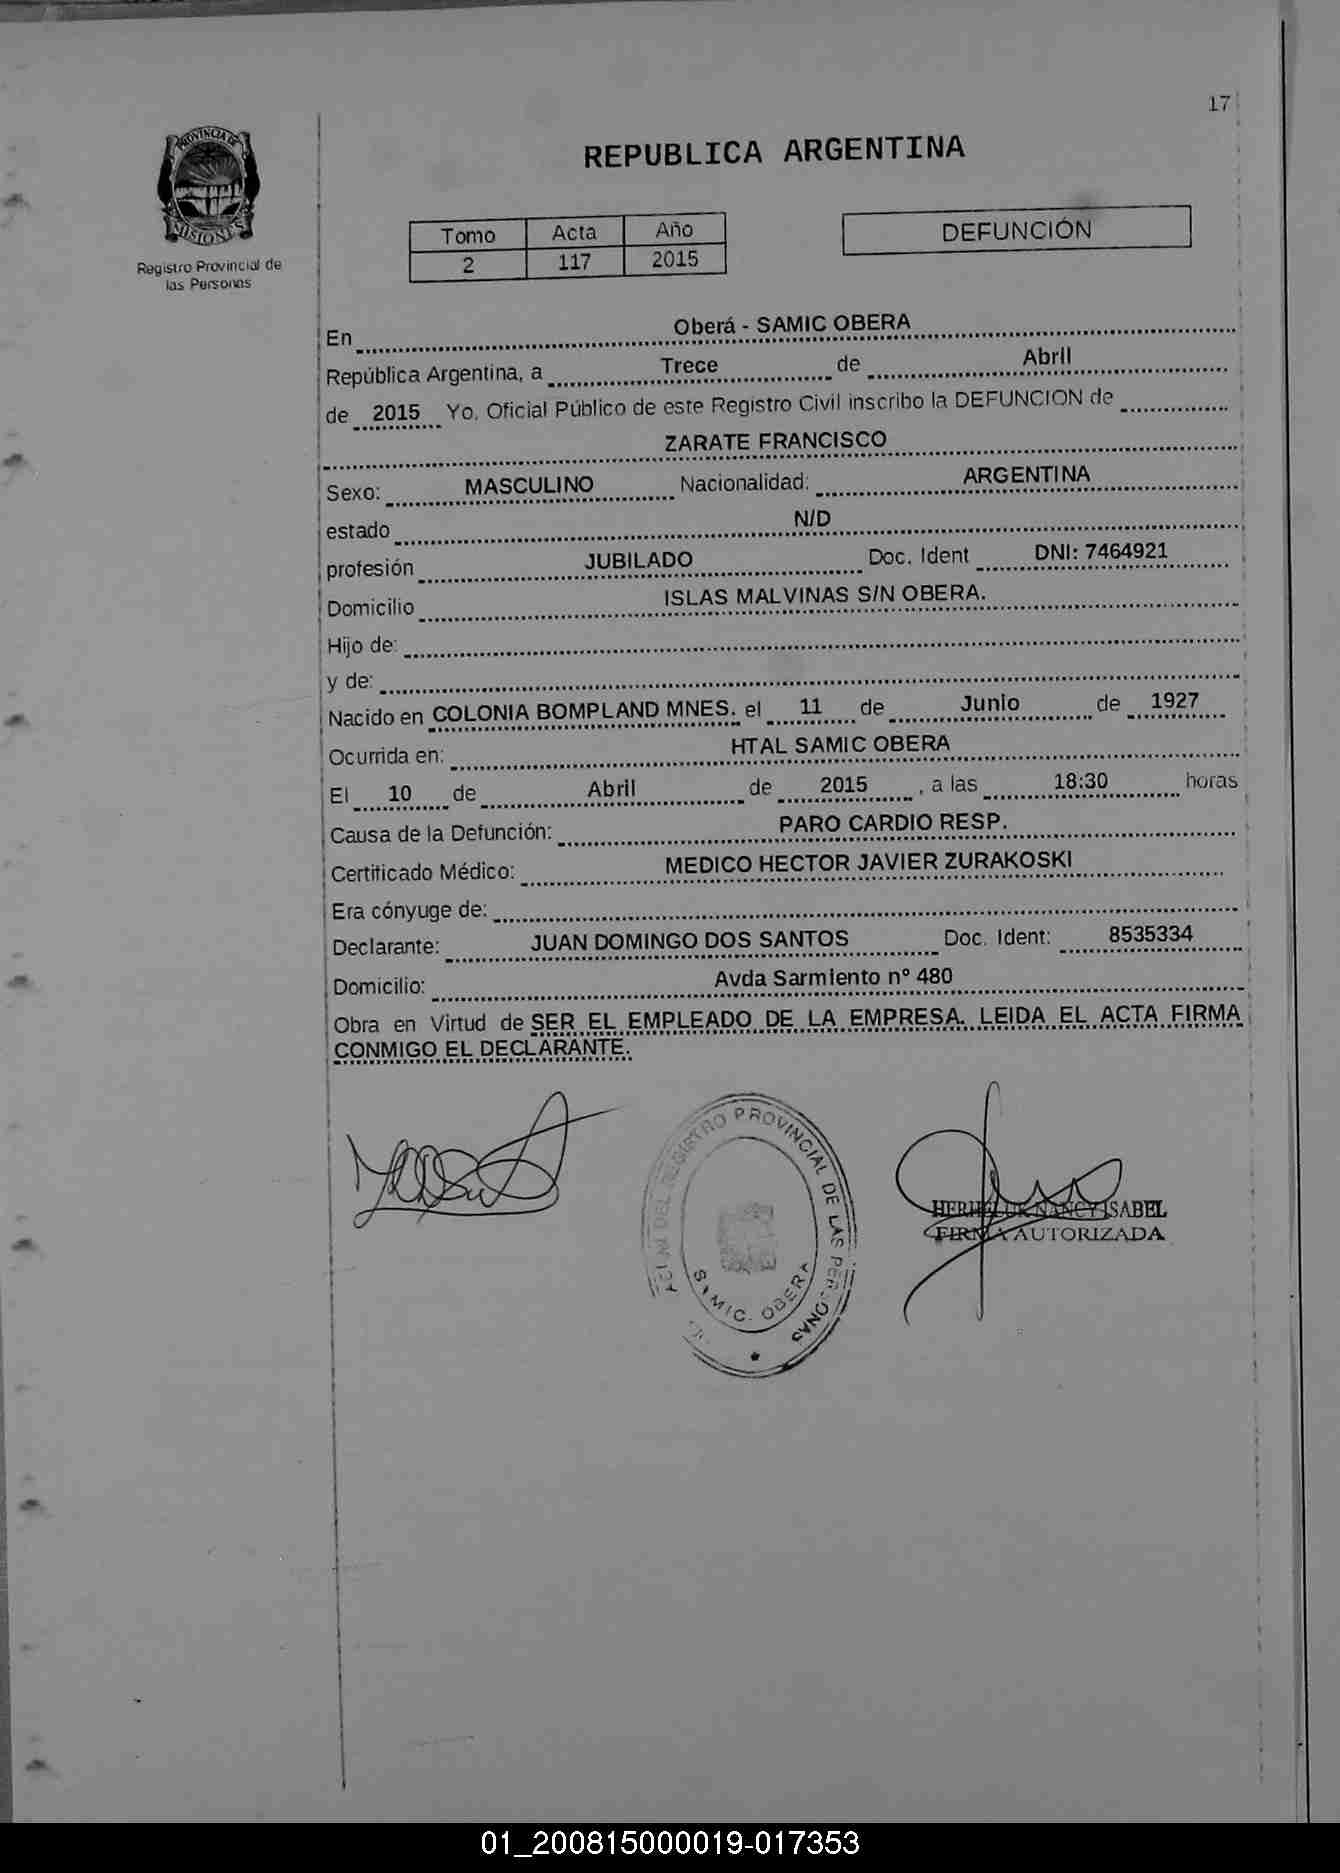 17
PROVINCIA DE
MISIONES
Registro Provincial de
las Personas
REPUBLICA ARGENTINA
Tomo Acta Año
2 117 2015
DEFUNCIÓN
En Oberá - SAMIC OBERA
República Argentina, a Trece de Abril
de 2015 Yo, Oficial Público de este Registro Civil inscribo la DEFUNCION de
ZARATE FRANCISCO
Sexo: MASCULINO Nacionalidad: ARGENTINA
estado N/D
profesión JUBILADO Doc. Ident DNI: 7464921
Domicilio ISLAS MALVINAS S/N OBERA.
Hijo de:
y de:
Nacido en COLONIA BOMPLAND MNES. el 11 de Junio de 1927
Ocurrida en: HTAL SAMIC OBERA
El 10 de Abril de 2015, a las 18:30 horas
Causa de la Defunción: PARO CARDIO RESP.
Certificado Médico: MEDICO HECTOR JAVIER ZURAKOSKI
Era cónyuge de:
Declarante: JUAN DOMINGO DOS SANTOS Doc. Ident: 8535334
Domicilio: Avda Sarmiento nº 480
Obra en Virtud de SER EL EMPLEADO DE LA EMPRESA. LEIDA EL ACTA FIRMA
CONMIGO EL DECLARANTE.
DEL REGISTRO PROVINCIAL DE LAS PERSONAS
SAMIC. OBERA
NANCY ISABEL
FIRMA AUTORIZADA
01_200815000019-017353